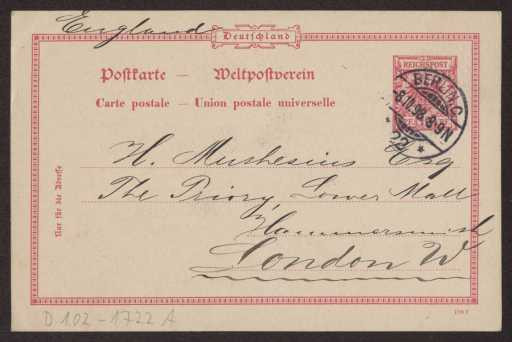 England
Deutschland
Postkarte — Weltpostverein
Carte postale — Union postale universelle
REICHSPOST
BERLIN, C.
22
H. Muthesius Esq
The Priory, Lower Mall
Hammersmith
London W
Nur für die Adresse
D 102-1722 A